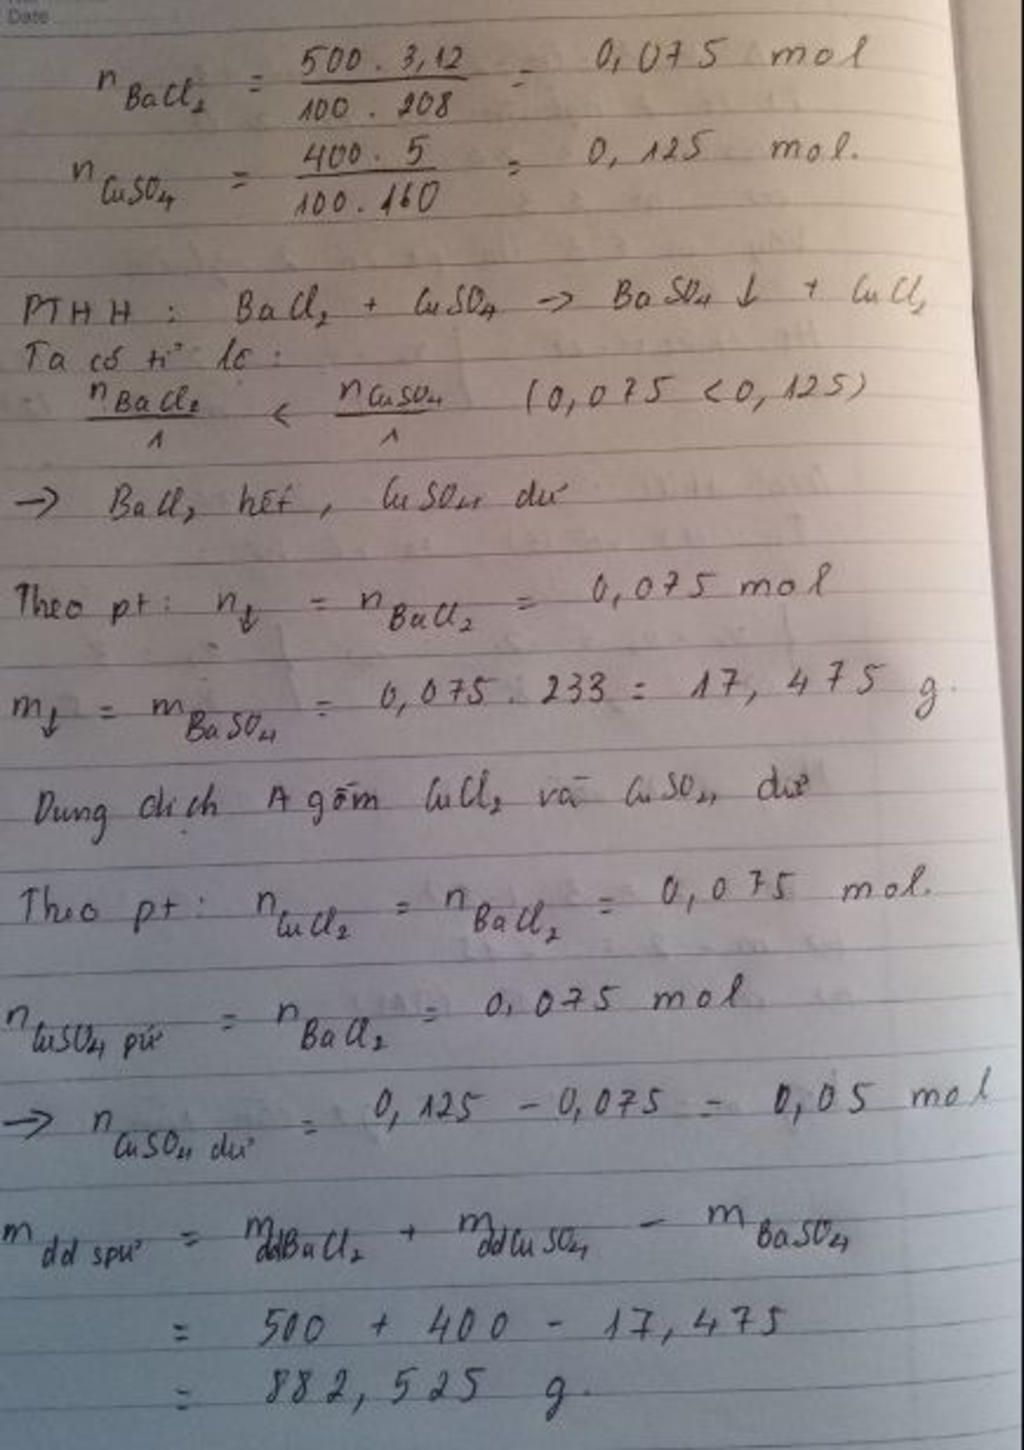 Date
n BaCl₂ = 500 . 3,12 / 100 . 208 = 0,075 mol
n CuSO₄ = 400 . 5 / 100 . 160 = 0,125 mol.
PTHH : BaCl₂ + CuSO₄ → BaSO₄ ↓ + CuCl₂
Ta có tỉ lệ :
n BaCl₂ / 1 < n CuSO₄ / 1 (0,075 < 0,125)
→ BaCl₂ hết , CuSO₄ dư
Theo pt : n↓ = n BaCl₂ = 0,075 mol
m↓ = m BaSO₄ = 0,075 . 233 = 17,475 g.
Dung dịch A gồm CuCl₂ và CuSO₄ dư
Theo pt : n CuCl₂ = n BaCl₂ = 0,075 mol.
n CuSO₄ pứ = n BaCl₂ = 0,075 mol
→ n CuSO₄ dư = 0,125 - 0,075 = 0,05 mol
m dd spứ = m ddBaCl₂ + m ddCuSO₄ - m BaSO₄
= 500 + 400 - 17,475
= 882,525 g.